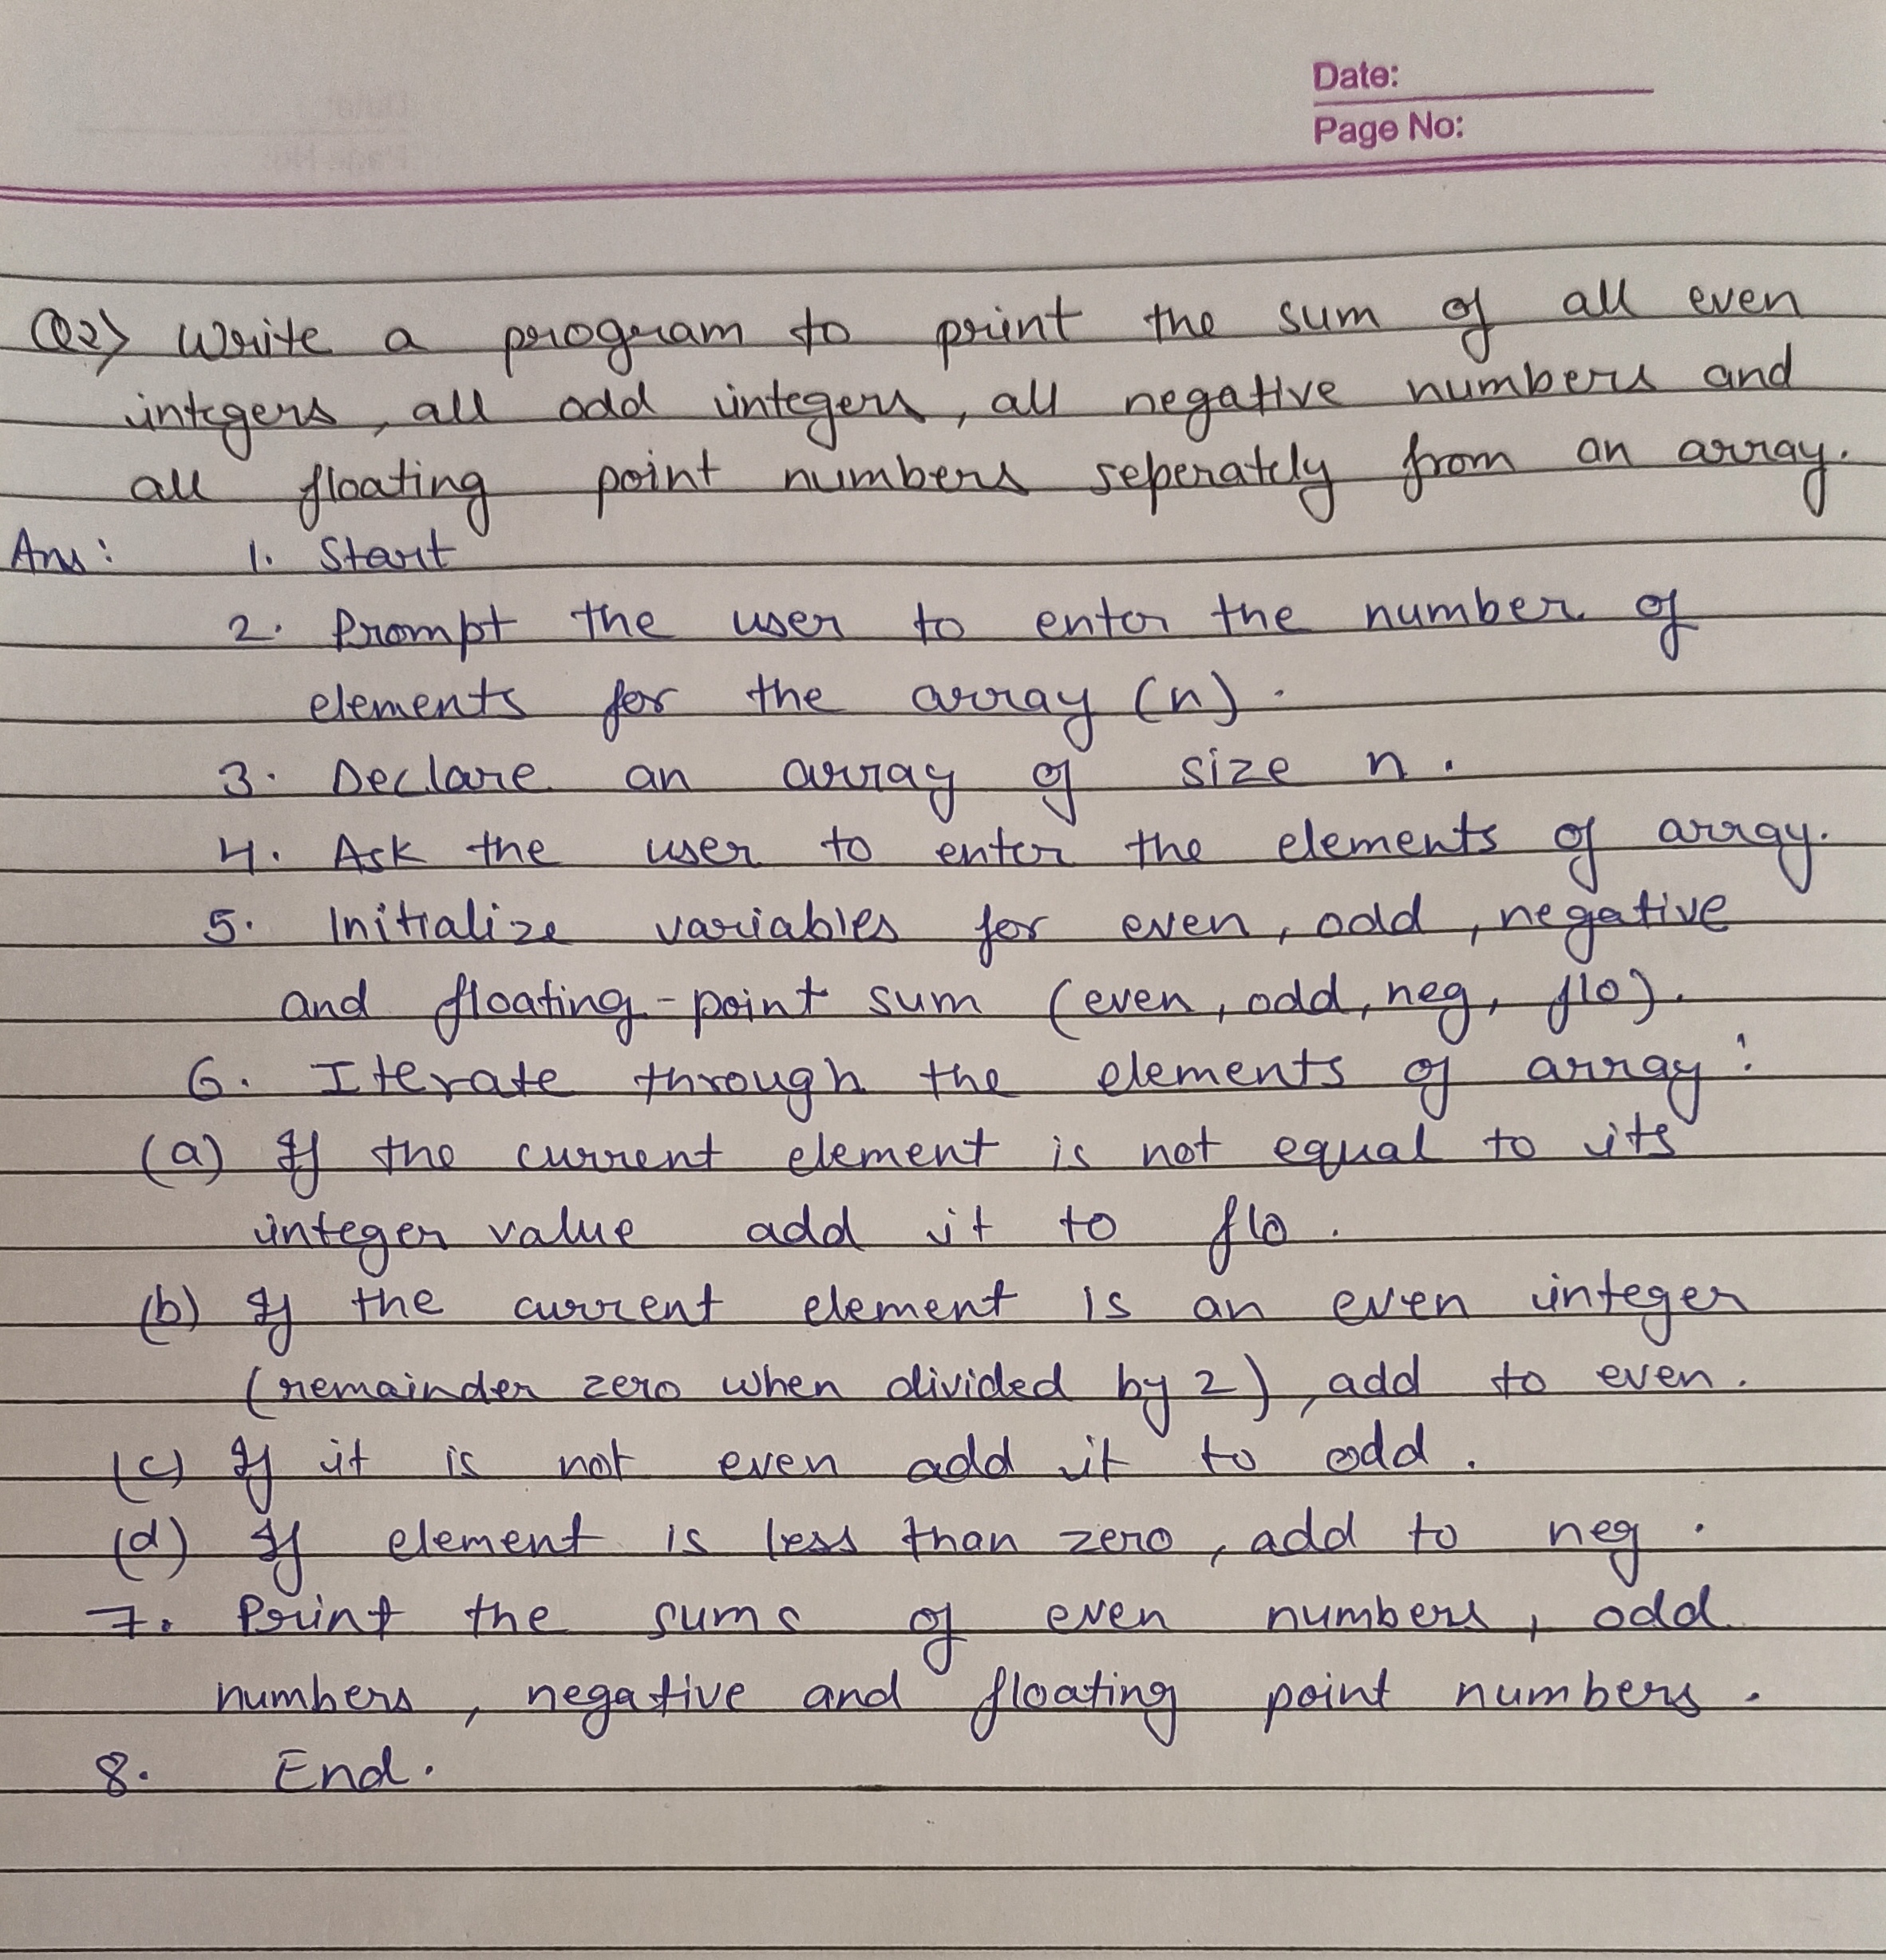 Date:
Page No:
Q2) Write a program to print the sum of all even
integers, all odd integers, all negative numbers and
all floating point numbers seperately from an array.
Ans: 1. Start
2. Prompt the user to enter the number of
elements for the array (n).
3. Declare an array of size n.
4. Ask the user to enter the elements of array.
5. Initialize variables for even, odd, negative
and floating-point sum (even, odd, neg, flo).
6. Iterate through the elements of array:
(a) If the current element is not equal to its
integer value add it to flo.
(b) If the current element is an even integer
(remainder zero when divided by 2), add to even.
(c) If it is not even add it to odd.
(d) If element is less than zero, add to neg.
7. Print the sums of even numbers, odd
numbers, negative and floating point numbers.
8. End.